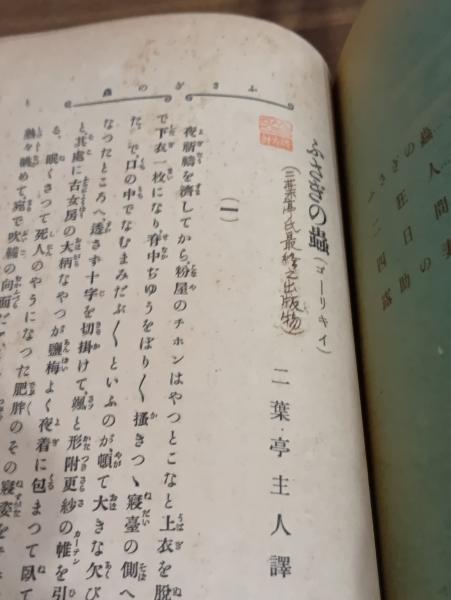 ふさぎの蟲
ふさぎの蟲(ゴーリキイ)
(二葉亭氏最終之出版物)
二葉亭主人譯
(一)
夜祈禱を濟してから、粉屋のチホンはやつとこなと上衣を脫
で下衣一枚になり、脊中ぢゆうをぼり〱搔きつゝ寢臺の側へ
た。で口の中でなむまみだぶ〱といふのが頓て大きな欠び
なつたところへ、透さず十字を切掛けて、颯と形附更紗の帷を引
と、其處に古女房の大柄なやつが鹽梅よく夜着に包まつて臥て
る。眠くさつて死人のやうになつた肥胖のその寢姿を
熟々眺めて、宛で吹綿の向面だ
ふさぎの蟲
二狂人
四日間
露助の妻